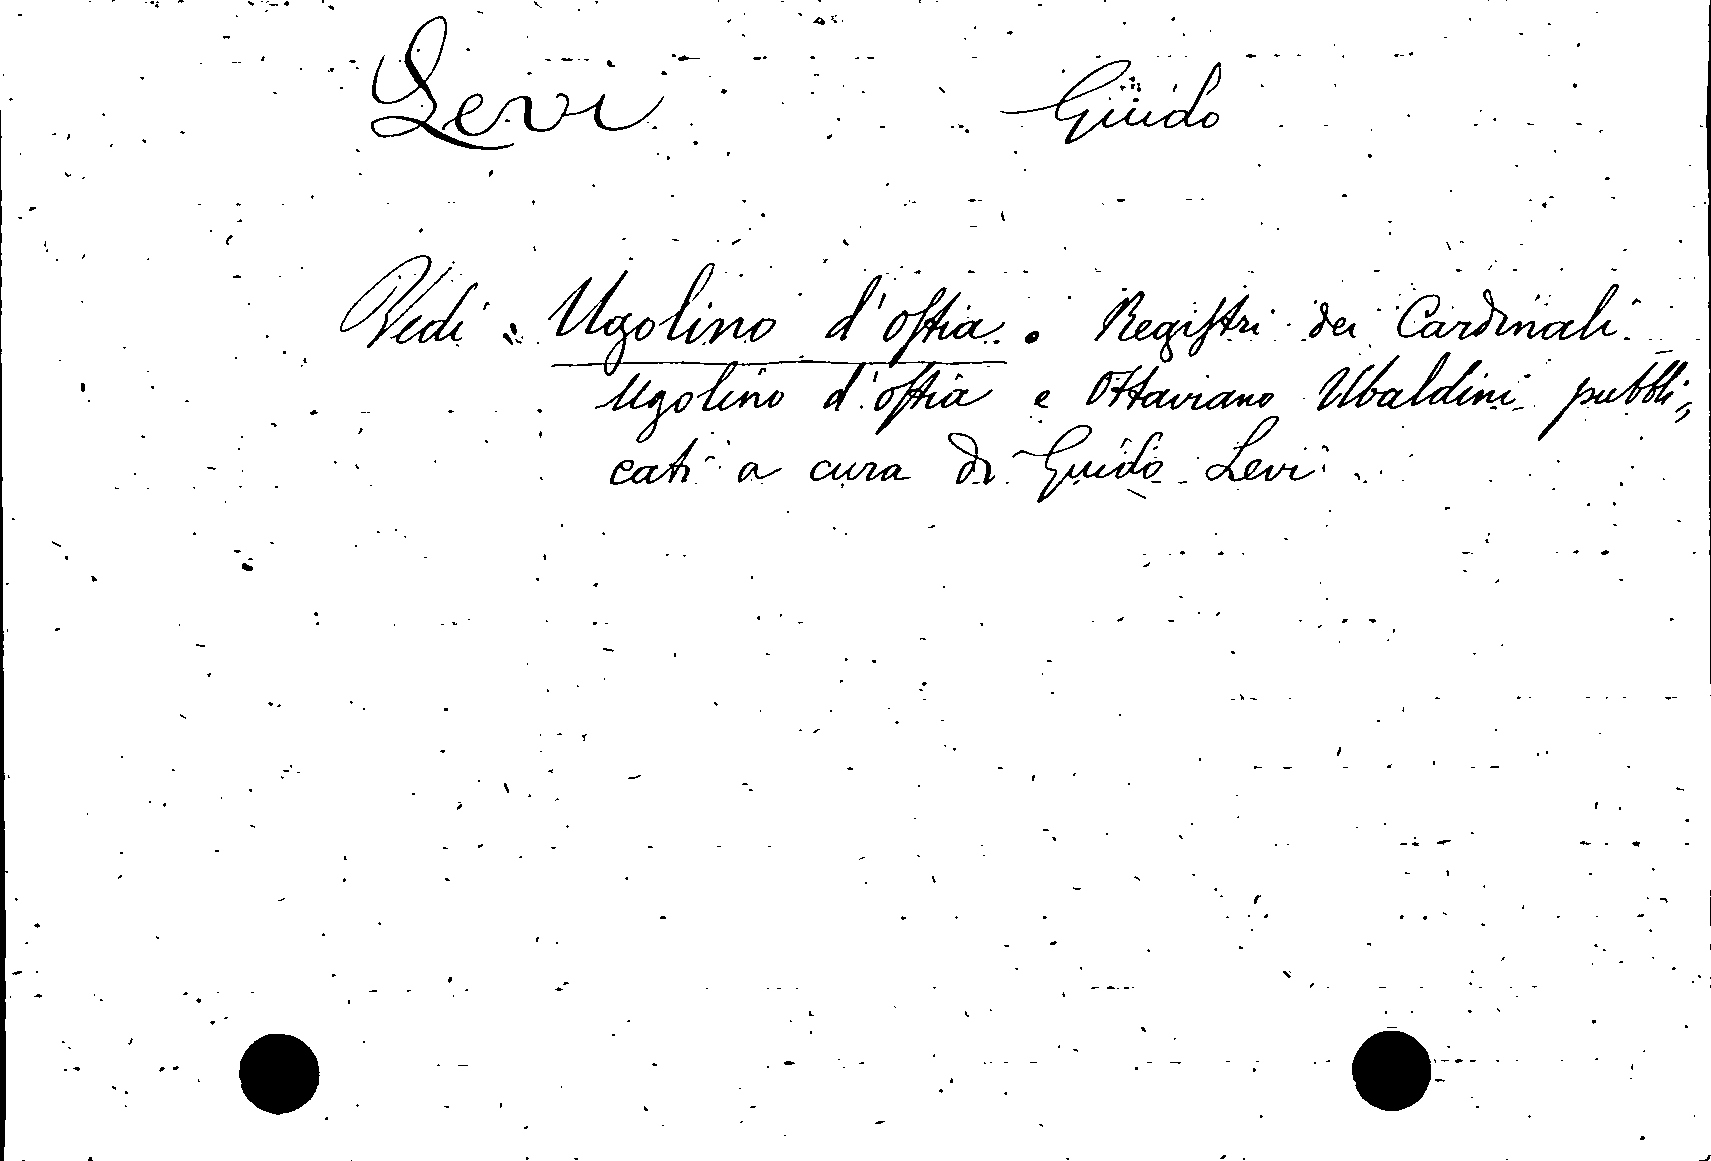 Levi Guido
Vedi: Ugolino d'Ostia. Registri dei Cardinali
Ugolino d'Ostia e Ottaviano Ubaldini pubbli=
cati a cura di Guido Levi